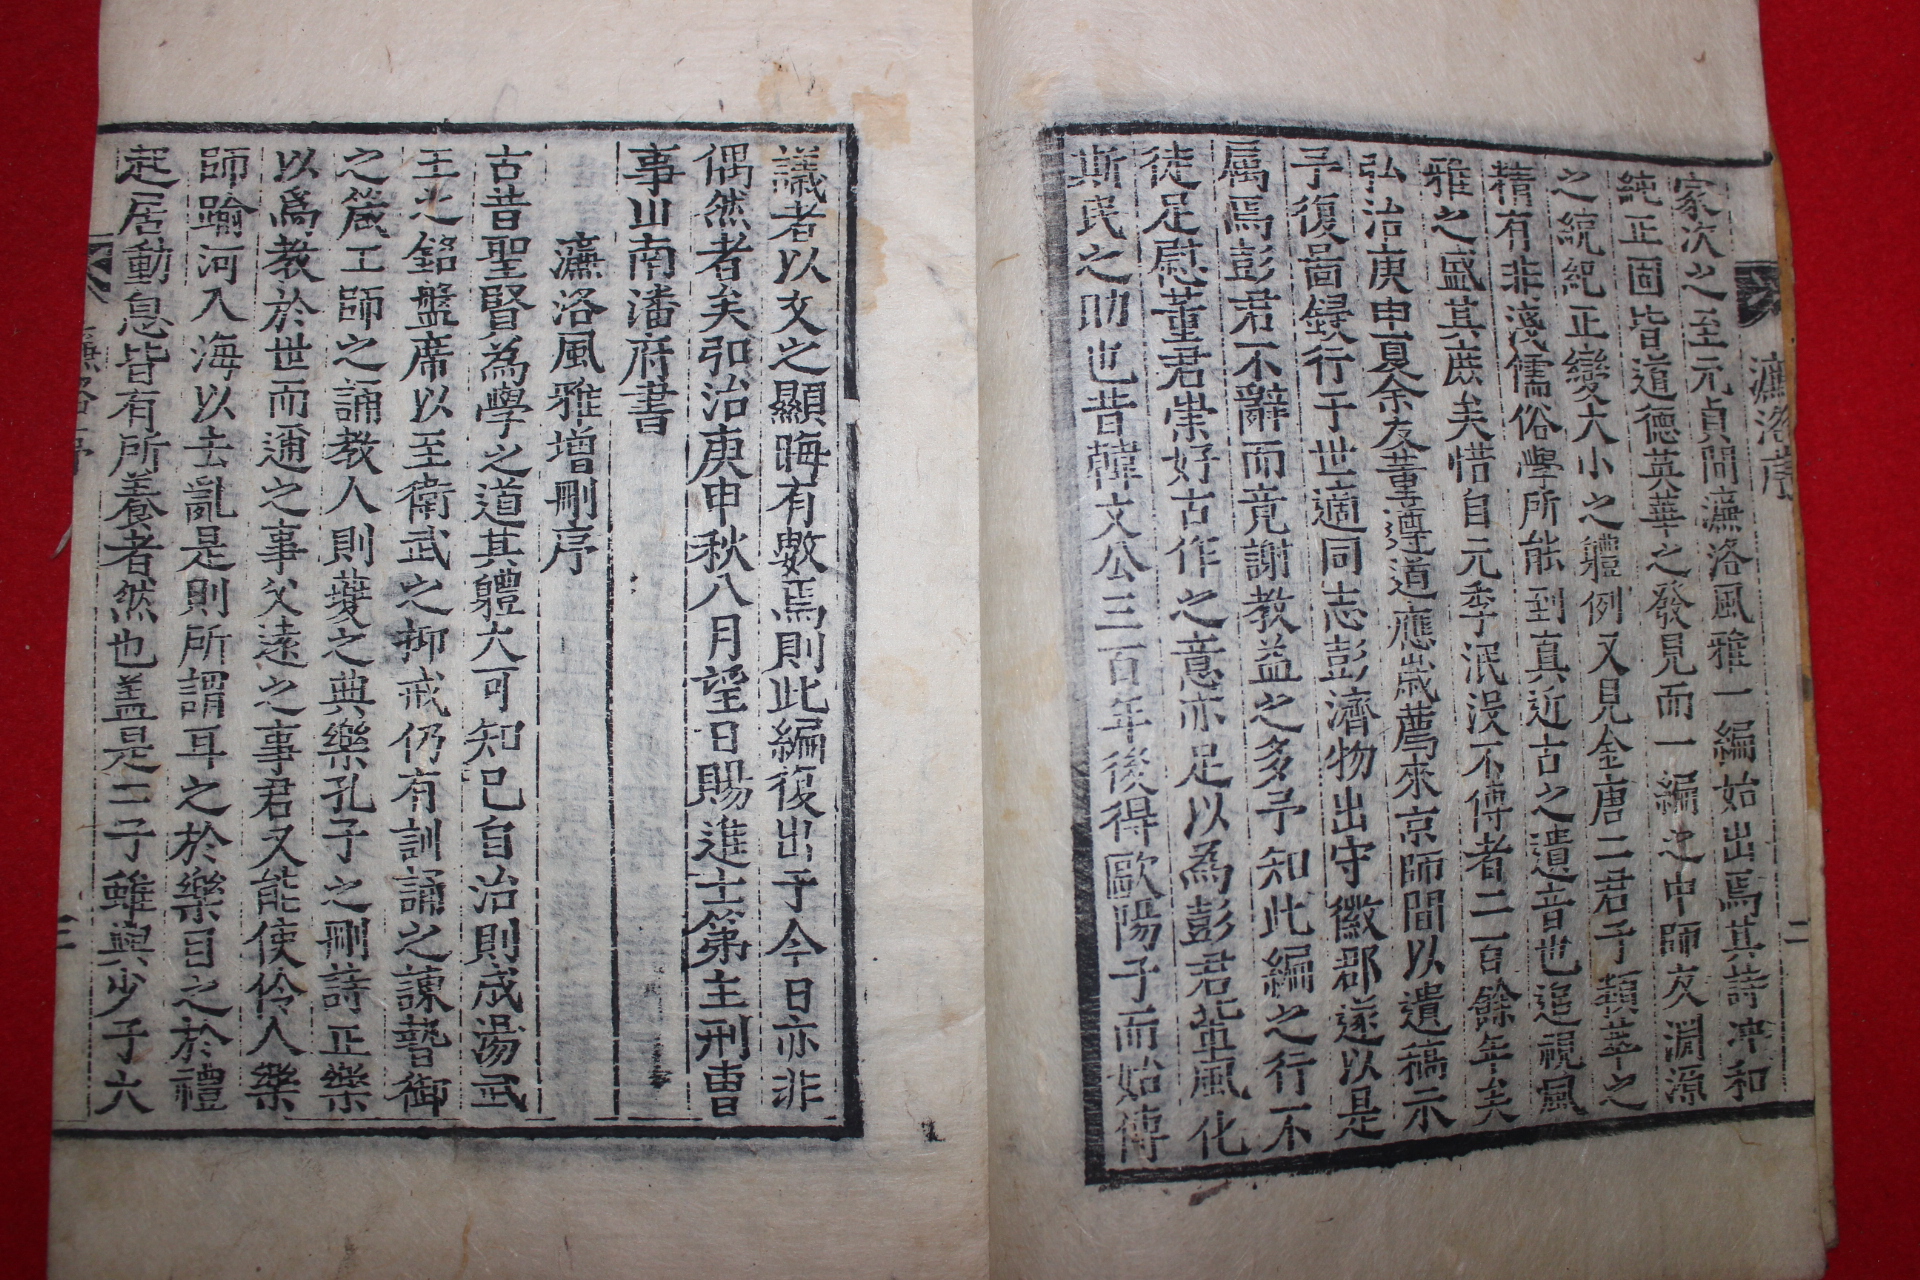 濂洛序
二
家次之至元貞間濂洛風雅一編始出焉其詩冲和
純正固皆道德英華之發見而一編之中師友淵源
之統紀正變大小之軆例又見金唐二君子類萃之
精有非淺儒俗學所能到真近古之遺音也追視風
雅之盛其庶矣惜自元季泯沒不傳者二百餘年矣
弘治庚申夏余友董遵道應歲薦來京師間以遺稿示
予復啚録行于世適同志彭濟物出守徽郡遂以是
屬焉彭君不辭而竟謝教益之多予知此編之行不
徒足慰董君崇好古作之意亦足以為彭君華風化
斯民之助也昔韓文公三百年後得歐陽子而始傳
議者以文之顯晦有數焉則此編復出于今日亦非
偶然者矣弘治庚申秋八月望日賜進士第主刑曹
事山南潘府書
濂洛風雅增刪序
古昔聖賢為學之道其軆大可知已自治則成湯武
王之銘盤席以至衛武之抑戒仍有訓誦之諫暬御
之箴工師之誦教人則蘷之典樂孔子之刪詩正樂
以為教於世而邇之事父遠之事君又能使伶人樂
師踰河入海以去亂是則所謂耳之於樂目之於禮
起居動息皆有所養者然也盖是二子雖與少子六
濂洛序
三